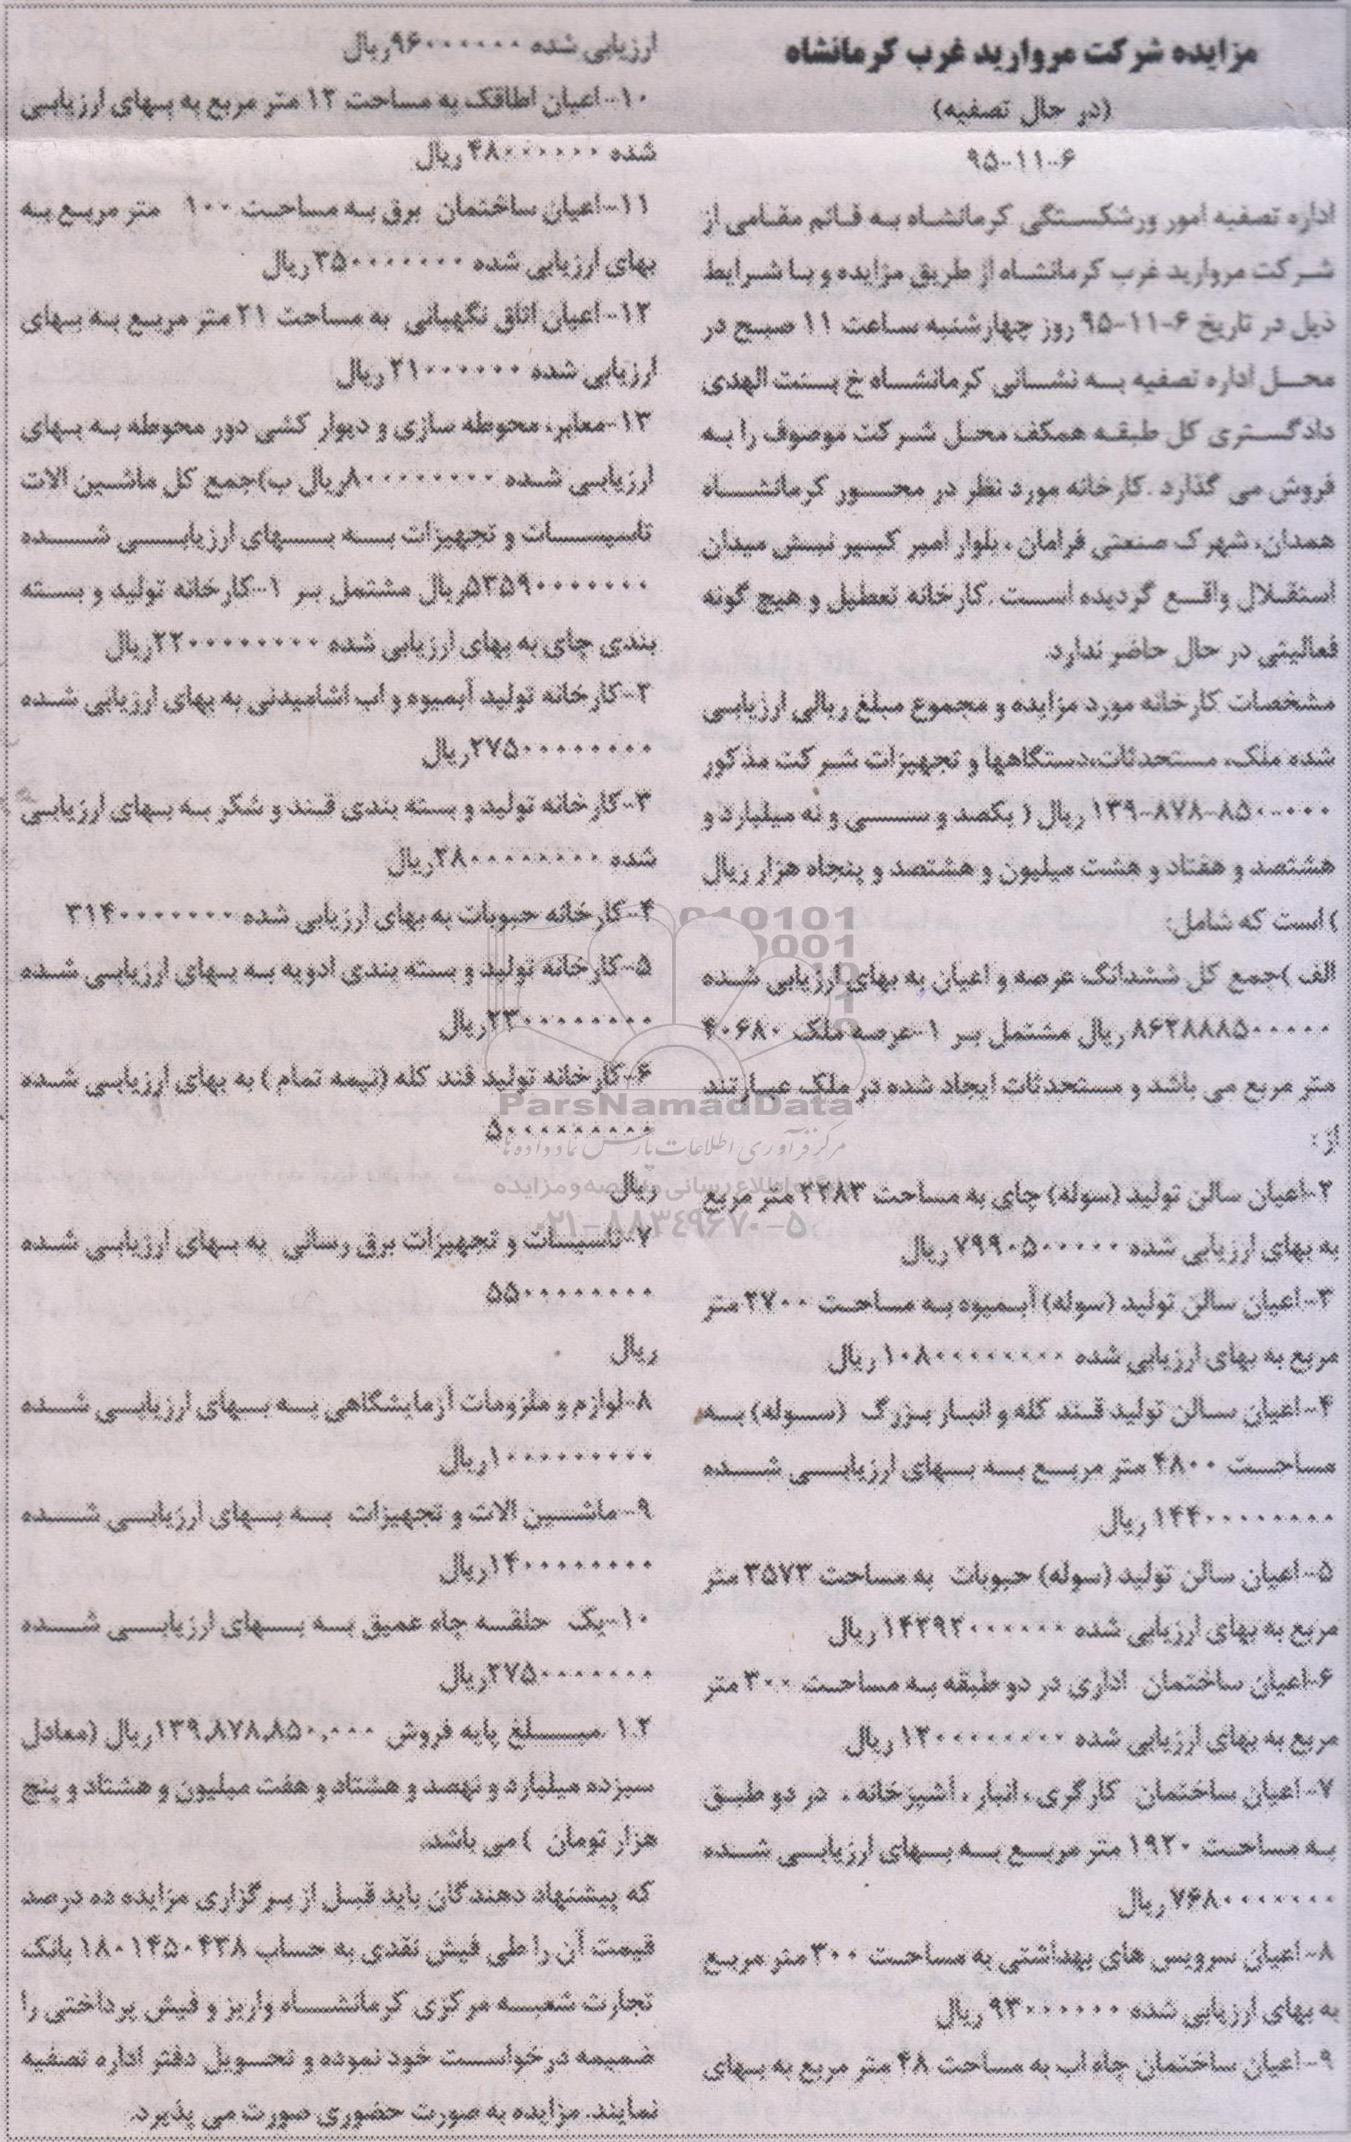 مزایده شرکت مروارید غرب کرمانشاه
(در حال تصفیه)
۹۵-۱۱-۶
اداره تصفیه امور ورشکستگی کرمانشاه به قائم مقامی از
شرکت مروارید غرب کرمانشاه از طریق مزایده و با شرایط
ذیل در تاریخ ۶-۱۱-۹۵ روز چهارشنبه ساعت ۱۱ صبح در
محل اداره تصفیه به نشانی کرمانشاه خ بنت الهدی
دادگستری کل طبقه همکف محل شرکت موصوف را به
فروش می گذارد .کارخانه مورد نظر در محور کرمانشاه
همدان، شهرک صنعتی فرامان ، بلوار امیر کبیر نبش میدان
استقلال واقع گردیده است .کارخانه تعطیل و هیچ گونه
فعالیتی در حال حاضر ندارد.
مشخصات کارخانه مورد مزایده و مجموع مبلغ ریالی ارزیابی
شده ملک، مستحدثات،دستگاهها و تجهیزات شرکت مذکور
۱۳۹-۸۷۸-۸۵۰-۰۰۰ ریال ( یکصد و سی و نه میلیارد و
هشتصد و هفتاد و هشت میلیون و هشتصد و پنجاه هزار ریال
) است که شامل:
الف )جمع کل ششدانگ عرصه و اعیان به بهای ارزیابی شده
۸۶۲۸۸۸۵۰۰۰۰۰ ریال مشتمل بر ۱-عرصه ملک ۴۰۶۸۰
متر مربع می باشد و مستحدثات ایجاد شده در ملک عبارتند
از :
۲-اعیان سالن تولید (سوله) چای به مساحت ۲۲۸۳ متر مربع
به بهای ارزیابی شده ۷۹۹۰۵۰۰۰۰۰ ریال
۳-اعیان سالن تولید (سوله) آبمیوه به مساحت ۲۷۰۰ متر
مربع به بهای ارزیابی شده ۱۰۸۰۰۰۰۰۰۰۰ ریال
۴-اعیان سالن تولید قند کله و انبار بزرگ (سوله) به
مساحت ۴۸۰۰ متر مربع به بهای ارزیابی شده
۱۴۴۰۰۰۰۰۰۰۰ ریال
۵-اعیان سالن تولید (سوله) حبوبات به مساحت ۳۵۷۳ متر
مربع به بهای ارزیابی شده ۱۴۲۹۲۰۰۰۰۰۰ ریال
۶-اعیان ساختمان اداری در دو طبقه به مساحت ۳۰۰ متر
مربع به بهای ارزیابی شده ۱۲۰۰۰۰۰۰۰۰ ریال
۷-اعیان ساختمان کارگری ، انبار ، آشپزخانه ، در دو طبق
به مساحت ۱۹۲۰ متر مربع به بهای ارزیابی شده
۷۶۸۰۰۰۰۰۰۰ریال
۸-اعیان سرویس های بهداشتی به مساحت ۳۰۰ متر مربع
به بهای ارزیابی شده ۹۳۰۰۰۰۰۰ریال
۹-اعیان ساختمان چاه اب به مساحت ۴۸ متر مربع به بهای
ارزیابی شده ۹۶۰۰۰۰۰۰ریال
۱۰-اعیان اطاقک به مساحت ۱۲ متر مربع به بهای ارزیابی
شده ۴۸۰۰۰۰۰۰ ریال
۱۱-اعیان ساختمان برق به مساحت ۱۰۰ متر مربع به
بهای ارزیابی شده ۳۵۰۰۰۰۰۰۰ ریال
۱۲-اعیان اتاق نگهبانی به مساحت ۲۱ متر مربع به بهای
ارزیابی شده ۲۱۰۰۰۰۰۰ ریال
۱۳-معابر، محوطه سازی و دیوار کشی دور محوطه به بهای
ارزیابی شده ۸۰۰۰۰۰۰۰۰۰ریال ب)جمع کل ماشین الات
تاسیسات و تجهیزات به بهای ارزیابی شده
۵۳۵۹۰۰۰۰۰۰۰ریال مشتمل بر ۱-کارخانه تولید و بسته
بندی چای به بهای ارزیابی شده ۲۲۰۰۰۰۰۰۰۰ریال
۲-کارخانه تولید آبمیوه و اب اشامیدنی به بهای ارزیابی شده
۲۷۵۰۰۰۰۰۰۰۰ریال
۳-کارخانه تولید و بسته بندی قند و شکر به بهای ارزیابی
شده ۲۸۰۰۰۰۰۰۰۰ریال
۴-کارخانه حبوبات به بهای ارزیابی شده ۳۱۴۰۰۰۰۰۰۰
۵-کارخانه تولید و بسته بندی ادویه به بهای ارزیابی شده
۲۳۰۰۰۰۰۰۰۰ریال
۶-کارخانه تولید قند کله (نیمه تمام ) به بهای ارزیابی شده
۵۰۰۰۰۰۰۰۰۰
ریال
۷-تاسیسات و تجهیزات برق رسانی به بهای ارزیابی شده
۵۵۰۰۰۰۰۰۰۰
ریال
۸-لوازم و ملزومات آزمایشگاهی به بهای ارزیابی شده
۱۰۰۰۰۰۰۰۰۰ریال
۹-ماشین الات و تجهیزات به بهای ارزیابی شده
۱۴۰۰۰۰۰۰۰۰ریال
۱۰-یک حلقه چاه عمیق به بهای ارزیابی شده
۲۷۵۰۰۰۰۰۰۰ریال
۱.۲ .مبلغ پایه فروش ۱۳۹,۸۷۸,۸۵۰,۰۰۰ریال (معادل
سیزده میلیارد و نهصد و هشتاد و هفت میلیون و هشتاد و پنج
هزار تومان ) می باشد.
که پیشنهاد دهندگان باید قبل از برگزاری مزایده ده درصد
قیمت آن را طی فیش نقدی به حساب ۱۸۰۱۴۵۰۴۳۸ بانک
تجارت شعبه مرکزی کرمانشاه واریز و فیش پرداختی را
ضمیمه درخواست خود نموده و تحویل دفتر اداره تصفیه
نمایند. مزایده به صورت حضوری صورت می پذیرد.
ParsNamadData
مرکز فرآوری اطلاعات پارس نماد داده ها
۰۲۱-۸۸۳۴۹۶۷۰-۵